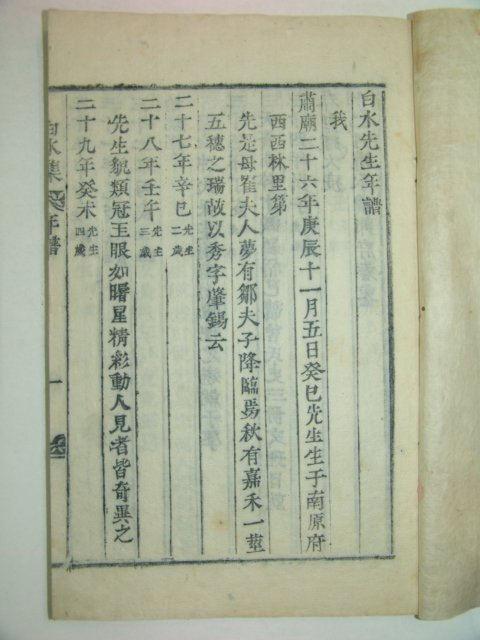 白水先生年譜
我
肅廟二十六年庚辰十一月五日癸巳先生生于南原府
西西林里第
先是母崔夫人夢有鄒夫子降臨焉秋有嘉禾一莖
五穗之瑞故以秀字肇錫云
二十七年辛巳先生二歲
二十八年壬午先生三歲
先生貌類冠玉眼如曙星精彩動人見者皆奇異之
二十九年癸未先生四歲
白水集 年譜 一